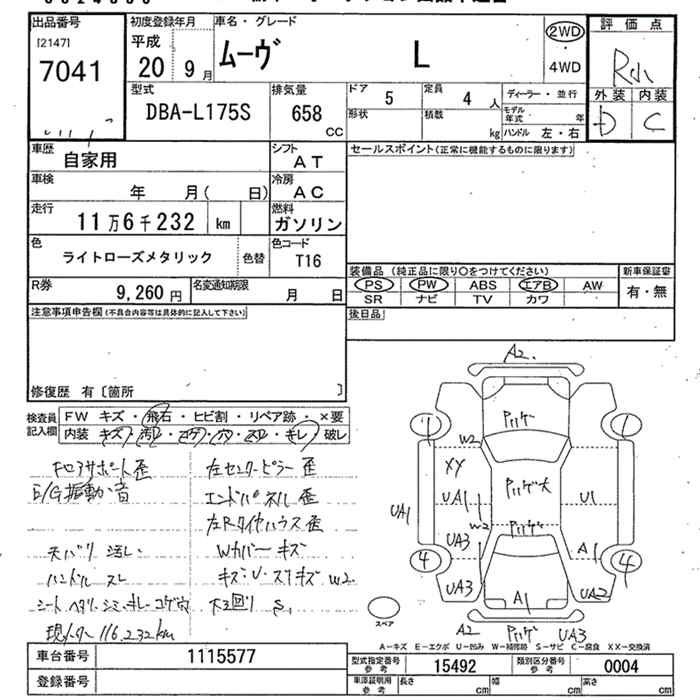 出品番号
[2147]
7041
初度登録年月
平成
20 9月
車名・グレード
ムーヴ L
2WD
4WD
評価点
R小
外装 内装
D C
型式
DBA-L175S
排気量
658
CC
ドア
5
定員
4人
形状
積載
kg
ディーラー・並行
モデル年式
年
ハンドル 左・右
車歴
自家用
シフト
AT
車検
年 月( 日)
冷房
AC
走行
11万6千232 km
燃料
ガソリン
色
ライトローズメタリック
色替
色コード
T16
R券
9,260円
名変通知期限
月 日
セールスポイント(正常に機能するものに限ります)
装備品(純正品に限り○をつけてください)
PS PW ABS エアB AW
SR ナビ TV カワ
新車保証書
有・無
後日品
注意事項申告欄(不具合内容等は具体的に記入して下さい)
修復歴 有〔箇所 〕
検査員記入欄
FW キズ・飛石・ヒビ割・リペア跡・×要
内装 キズ・汚レ・コゲ・穴・スレ・キレ・破レ
Fコアサポート歪
E/G振動か音
天バリ 汚レ
ハンドル スレ
シート ヘタリ・シミ・キレ・コゲ穴
現メーター 116,232km
左センターピラー 歪
エンドパネル 歪
左Rタイヤハウス 歪
Wカバー キズ
キズ・U・スリキズ W2
下回り S1
A2
W2
XY
UA1
W2
UA1
UA3
UA3
U1
A1
UA2
A1
A2
UA3
4
4
スペア
A-キズ E-エクボ U-凹み W-補修跡 S-サビ C-腐食 XX-交換済
車台番号
1115577
登録番号
型式指定番号
参考
15492
類別区分番号
参考
0004
車庫証明用
参考
長さ
cm
幅
cm
高さ
cm